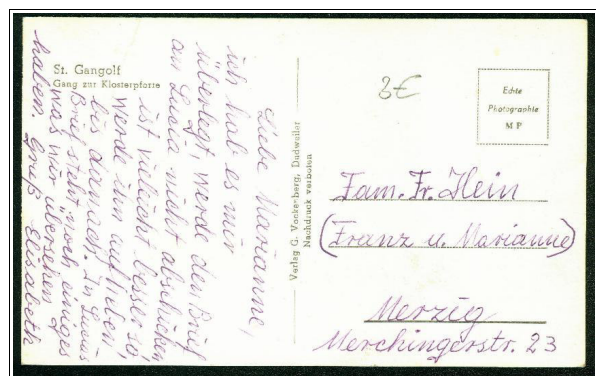 St. Gangolf
Gang zur Klosterpforte
Liebe Marianne,
ich hab es mir
überlegt, werde den Brief
an Lucia nicht abschicken
ist vielleicht besser so,
werde ihn aufheben,
bis danach. In Lucias
Brief steht noch einiges
was wir übersehen
haben. Gruß Elisabeth
Verlag G. Vockenberg, Dudweiler
Nachdruck verboten
3€
Echte
Photographie
M P
Fam. Fr. Hein
(Franz u. Marianne)
Merzig
Merchingerstr. 23